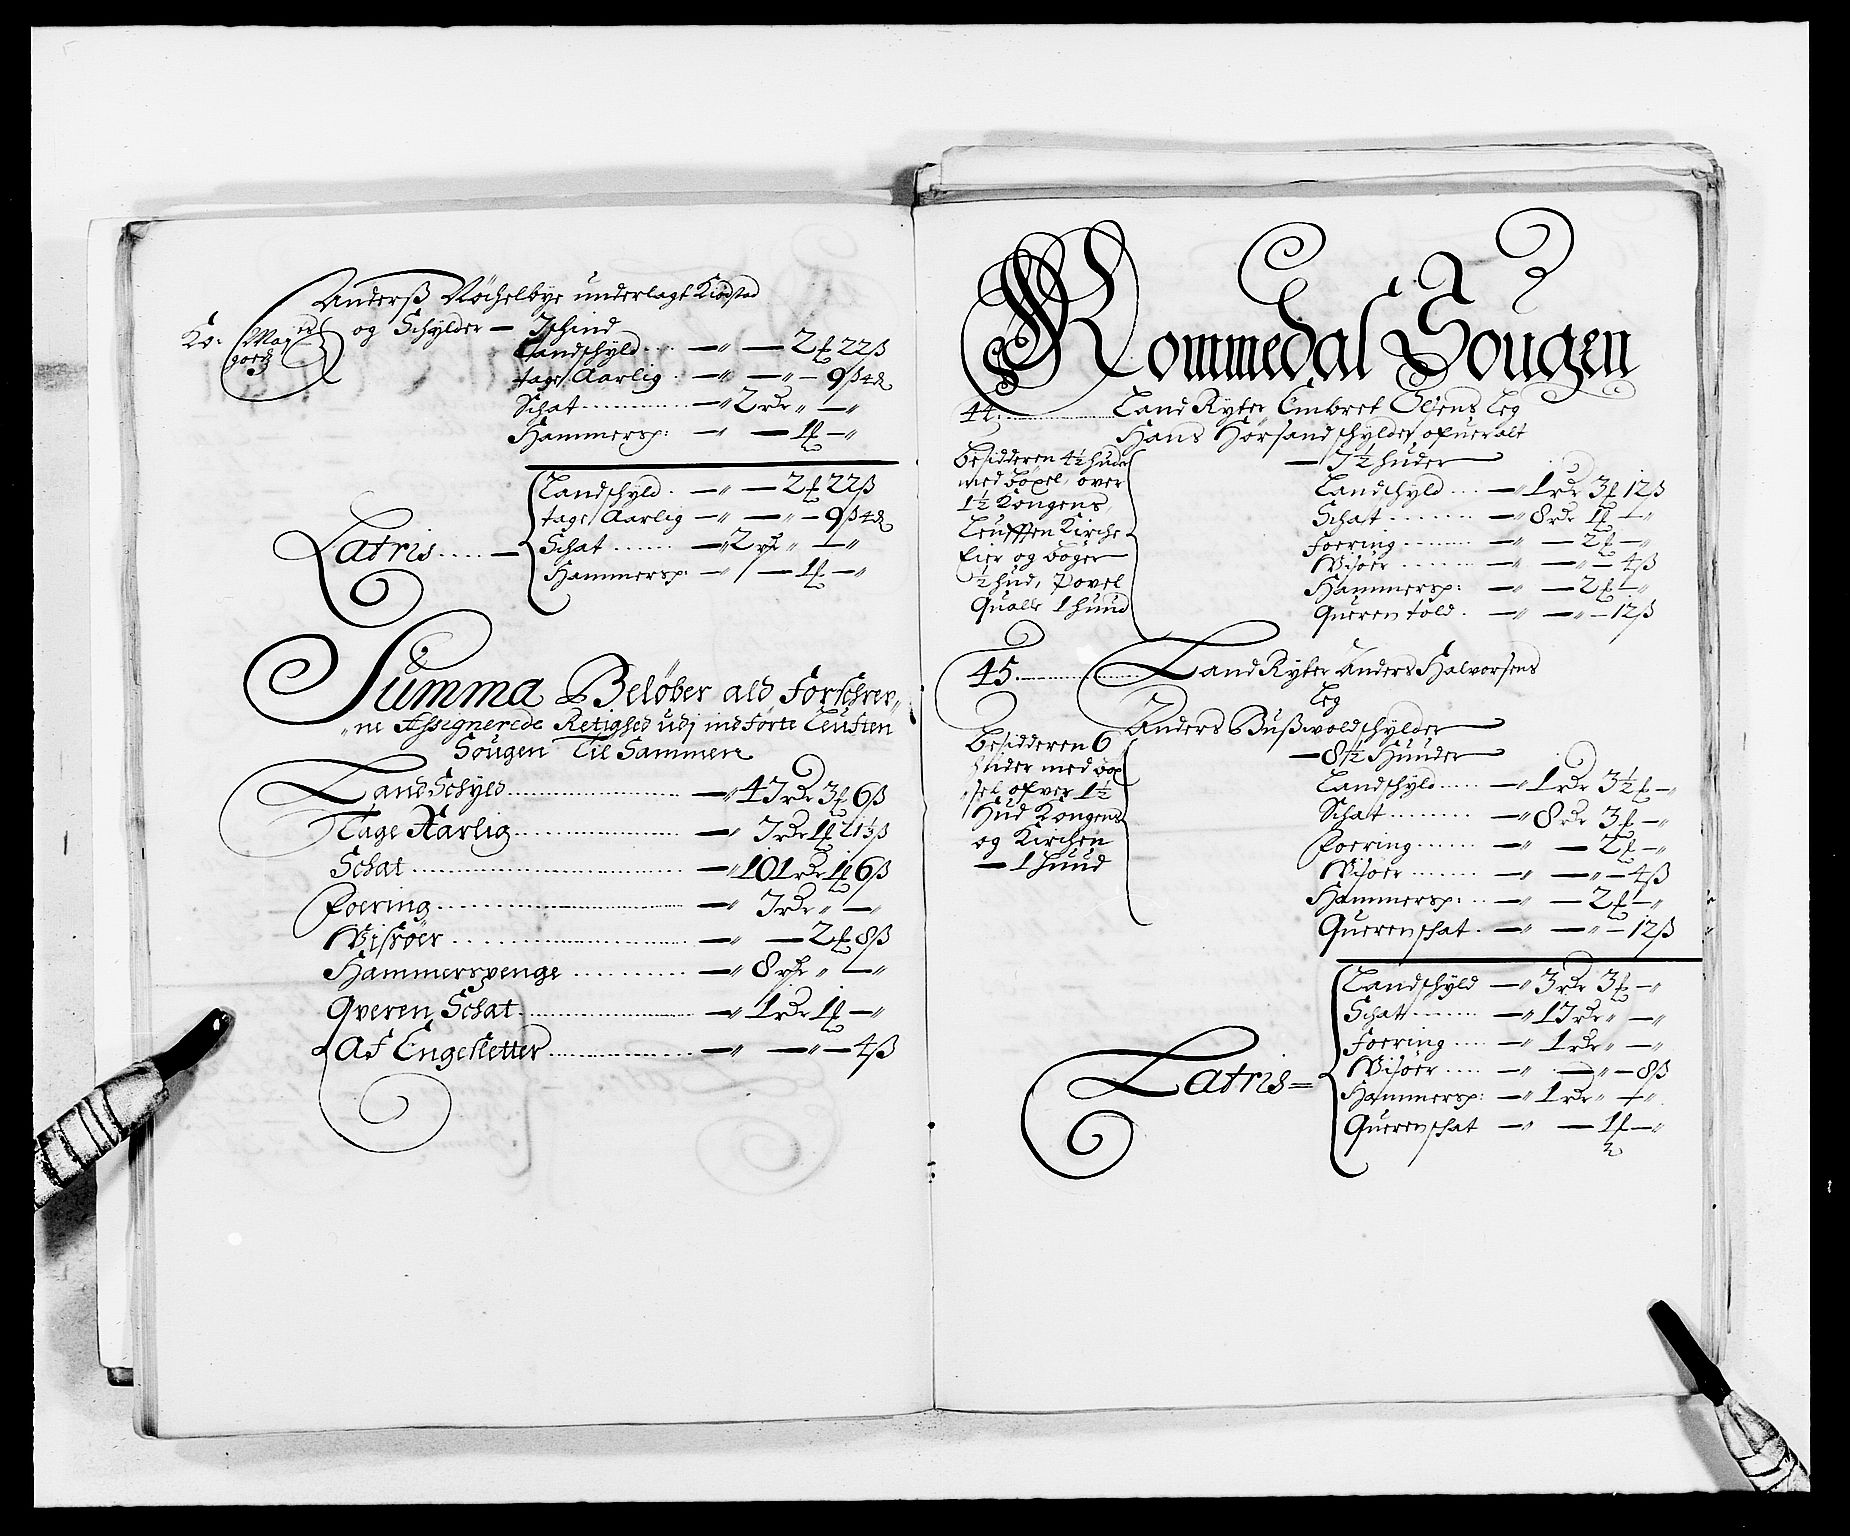 Anderß Nöchelbye underlagt Kiødstad
Ko: May: og Schylder — Jhind
gods
Landschyld .... —" — 2 ℔ 22 ß
tage Aarlig . —" —"— 9 ß 4 d
Schat .......... —" 2 rdr " —"
Hammersp: —" — 1 ℔ —"
Landschyld . —" — 2 ℔ 22 ß
tage Aarlig —" —"— 9 ß 4 d
Latris ..... — Schat ...... —" 2 rdr " —"
Hammersp: —" — 1 ℔ —"
Summa Beløber ald forschrev„
„ne Assignerede Retighed udj indførte Leuften
Sougen Til Sammen
LandSchyld ........ —" 47 rdr 3 ℔ 6 ß
Tage Aarlig ........ —" 7 rdr 1 ℔ 21⅓ ß
Schat ........ —" 101 rdr 1 ℔ 6 ß
Foering ........ —" 7 rdr " —"
Wissöer ........ —" — 2 ℔ 8 ß
Hammerspenge ........ —" 8 rdr " —"
Qveren Schat ........ —" 1 rdr 1 ℔ —"
Af Engesletter ........ —" —"— 4 ß
Rommedal Sougen
44. ........ Land Ryter Embret Olsens Leg
Hans Horsand schylder ofueralt
— 7½ huder —
Besidderen 4½ hude
med Boxel, over
1½ Kongens,
Leufften Kirche
Eier og Böger
½ hud, Povel
Qualle 1 huud
Landschyld .... —" 1 rdr 3 ℔ 12 ß
Schat ........ —" 8 rdr 1 ℔ —"
Foering ........ —" — 2 ℔ —"
Wisöer ........ —" —"— 4 ß
Hammersp: —" — 2 ℔ —"
Queren told . —" —"— 12 ß
45 ........ Land Ryter Anders Halvorsens
Leg
Anders Bußwold schylder
— 8½ Huuder —
Besidderen 6
huder med Box
„sel ofver 1½
Hud Kongens
og Kirchen
— 1 huud
Landschyld ..... —" 1 rdr 3½ ℔ —"
Schat ........ —" 8 rdr 3 ℔ —"
Foering ...... —" — 2 ℔ —"
Wisöer ....... —" —"— 4 ß
Hammersp: ... —" — 2 ℔ —"
Querenschat . —" —"— 12 ß
Landschyld —" 3 rdr 3 ℔ —"
Schat ....... —" 17 rdr " —"
Foering .... —" 1 rdr " —"
Latris = Wisöer .... —" —"— 8 ß
Hammersp: —" 1 rdr " —"
Querenschat —" — 1 ℔ —"